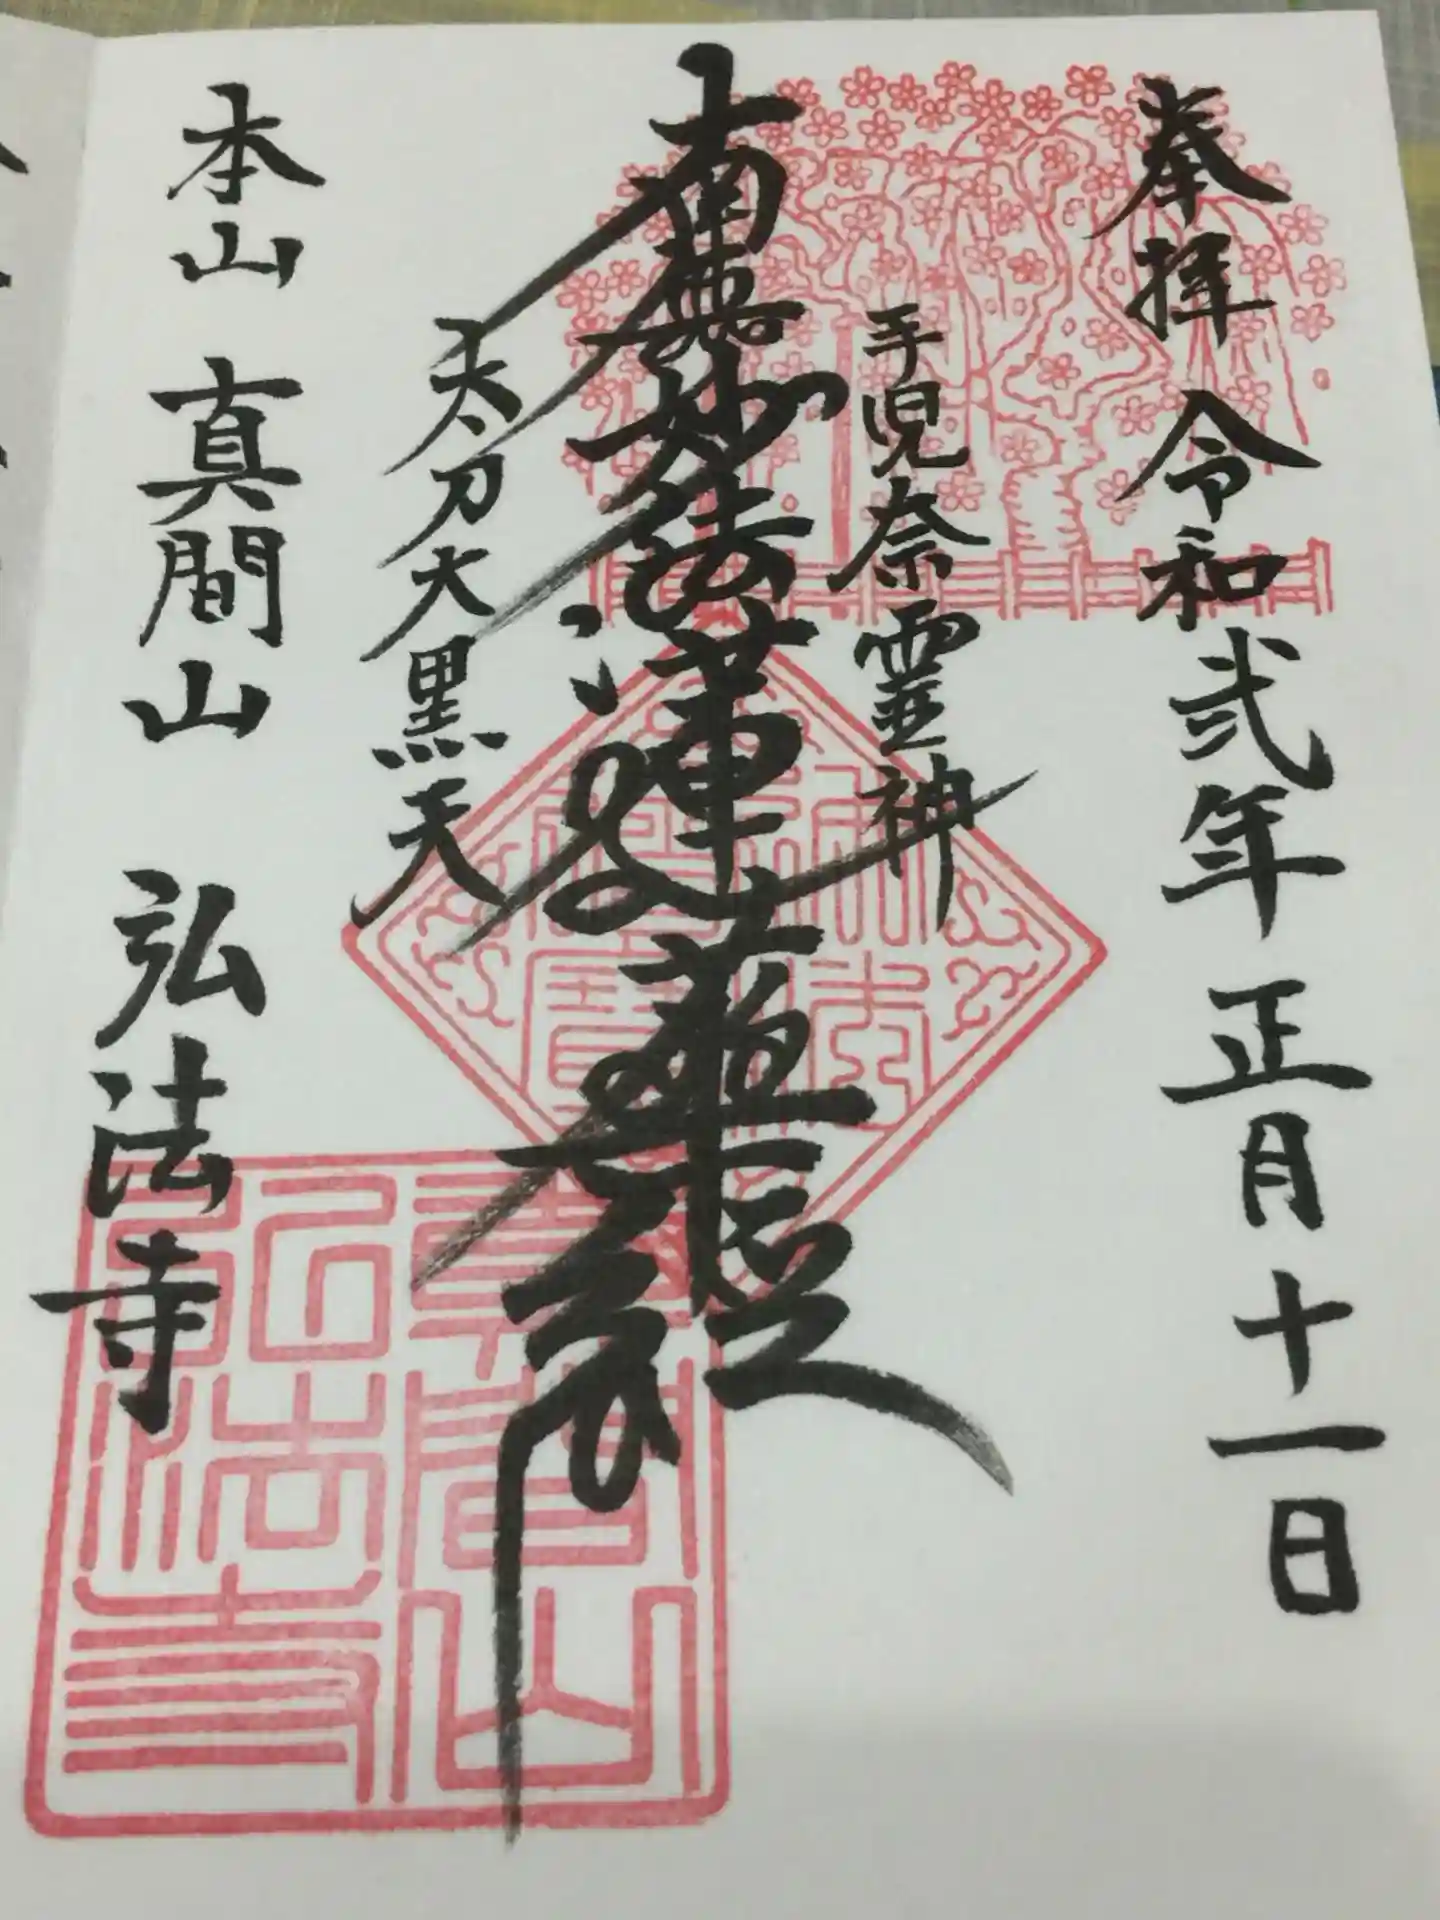 奉拝 令和弐年 正月十一日
手児奈霊神
南無妙法蓮華経
太刀大黒天
本山 真間山 弘法寺
真間山
弘法寺